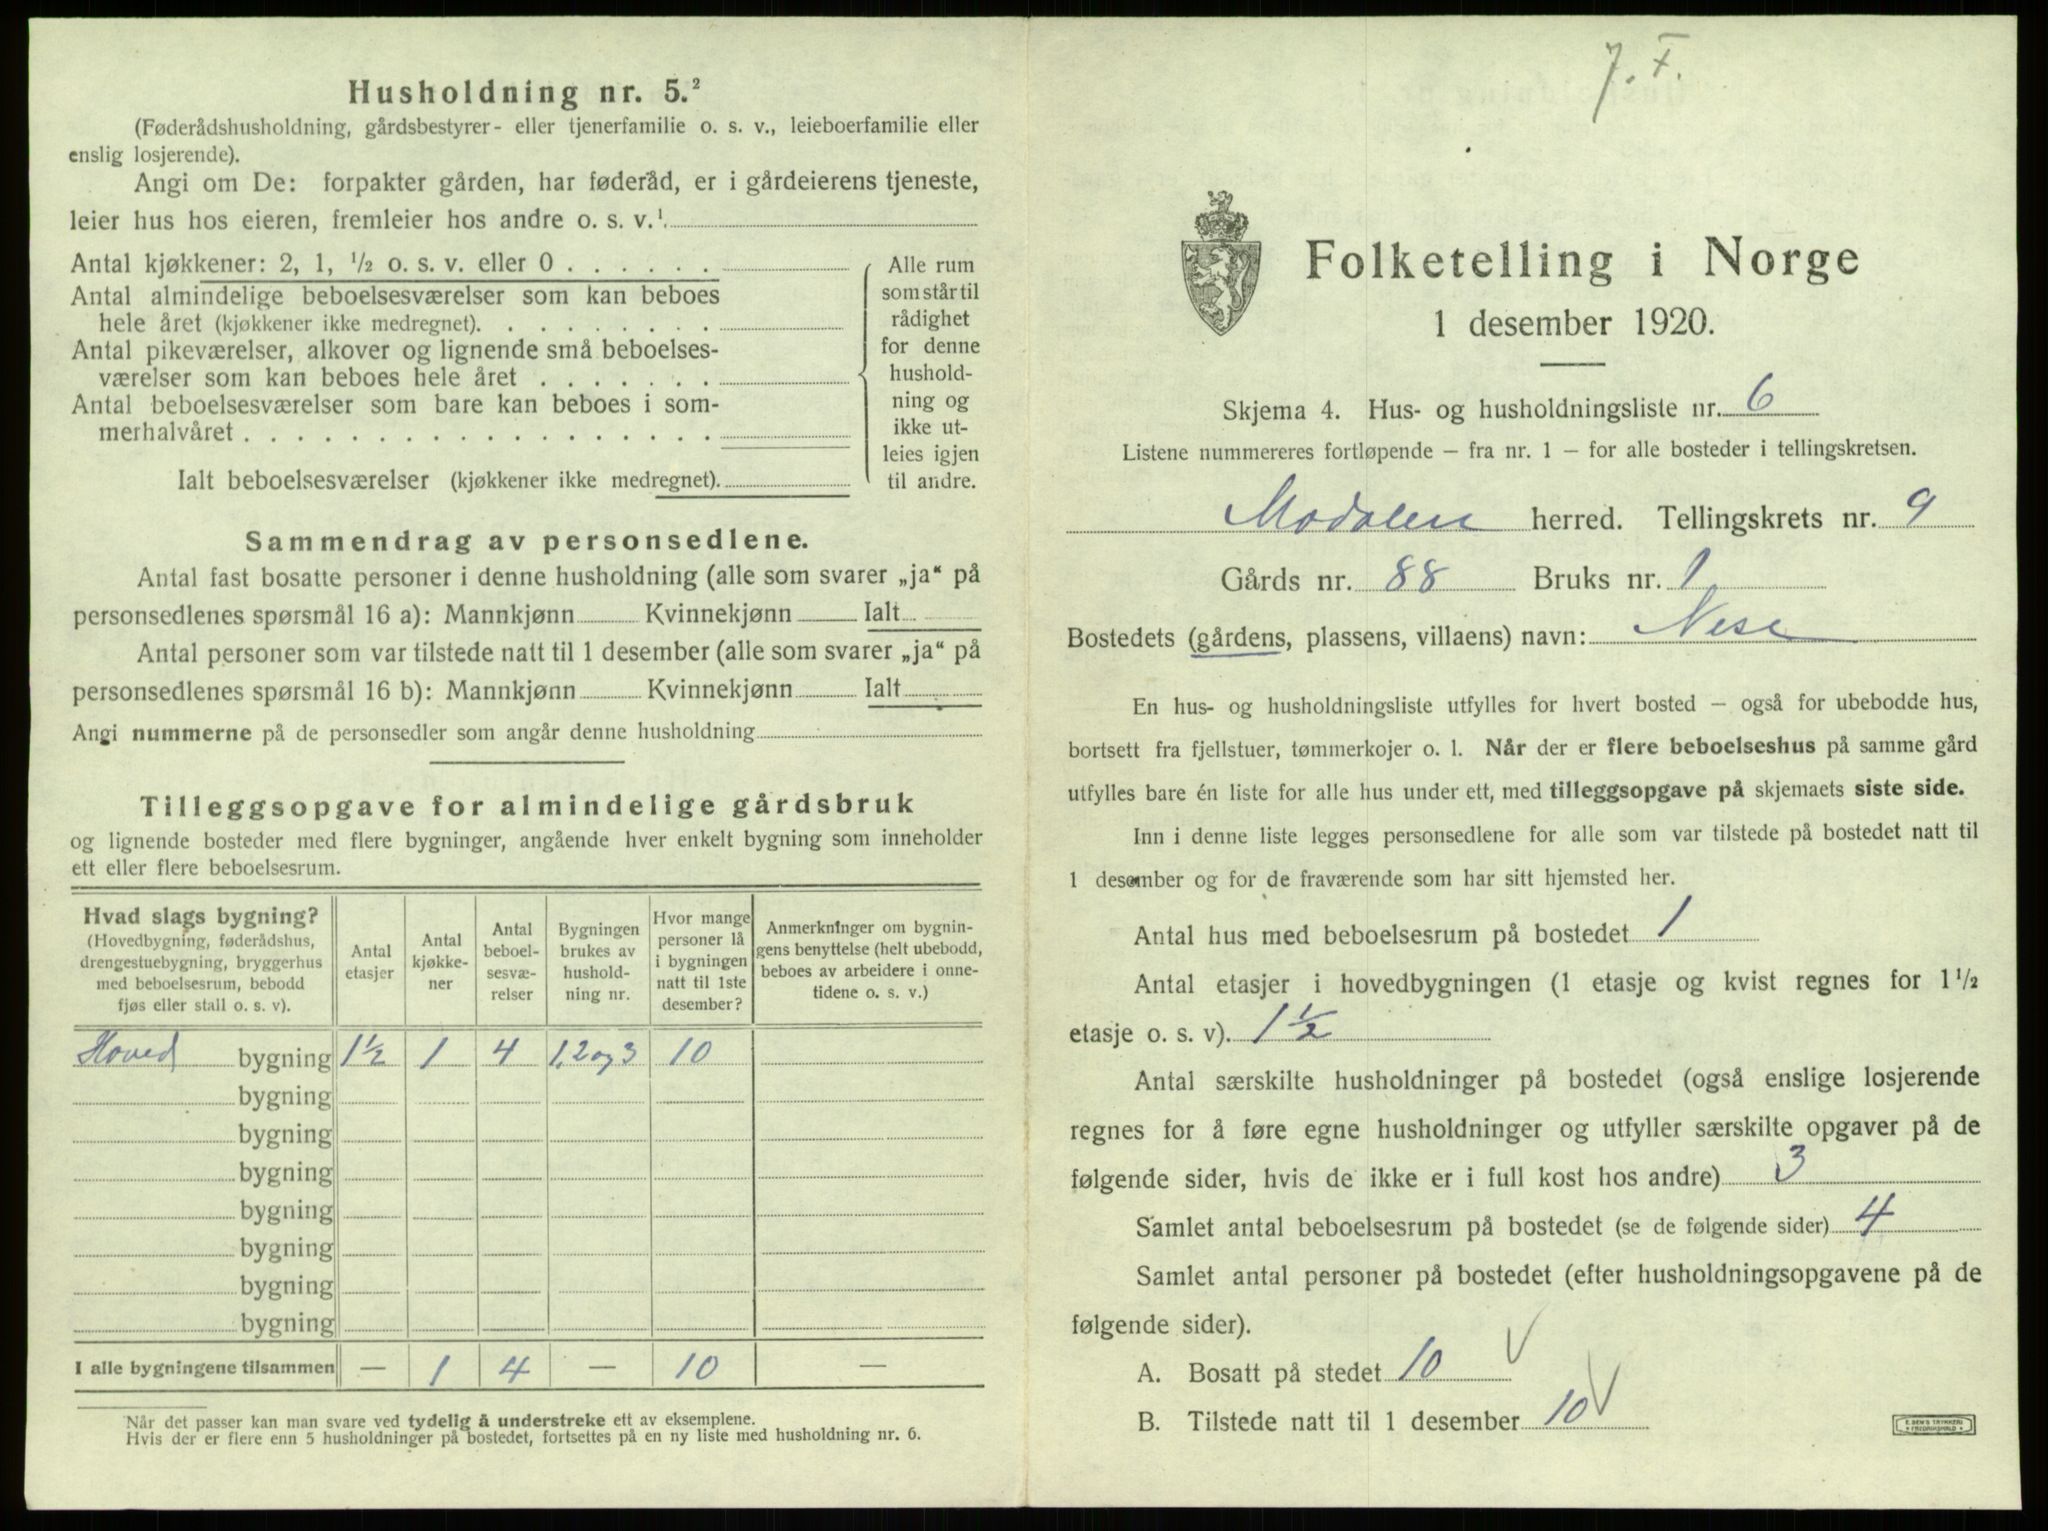 Husholdning nr. 5.²
(Føderådshusholdning, gårdsbestyrer- eller tjenerfamilie o. s. v., leieboerfamilie eller
enslig losjerende).
Angi om De: forpakter gården, har føderåd, er i gårdeierens tjeneste,
leier hus hos eieren, fremleier hos andre o. s. v.¹.
Antal kjøkkener: 2, 1, ½ o. s. v. eller 0 . . . . . .
Antal almindelige beboelsesværelser som kan beboes
hele året (kjøkkener ikke medregnet). . . . . . . . .
Antal pikeværelser, alkover og lignende små beboelses-
værelser som kan beboes hele året . . . . . . .
Antal beboelsesværelser som bare kan beboes i som-
merhalvåret . . . . . . . . . . . . . . . . . .
Ialt beboelsesværelser (kjøkkener ikke medregnet).
Alle rum
som står til
rådighet
for denne
hushold-
ning og
ikke ut-
leies igjen
til andre.
Sammendrag av personsedlene.
Antal fast bosatte personer i denne husholdning (alle som svarer „ja“ på
personsedlenes spørsmål 16 a): Mannkjønn Kvinnekjønn Ialt
Antal personer som var tilstede natt til 1 desember (alle som svarer „ja“ på
personsedlenes spørsmål 16 b): Mannkjønn Kvinnekjønn Ialt
Angi nummerne på de personsedler som angår denne husholdning
Tilleggsopgave for almindelige gårdsbruk
og lignende bosteder med flere bygninger, angående hver enkelt bygning som inneholder
ett eller flere beboelsesrum.
Hvad slags bygning?
(Hovedbygning, føderådshus,
drengestuebygning, bryggerhus
med beboelsesrum, bebodd
fjøs eller stall o. s. v).
Antal
etasjer
Antal
kjøkke-
ner
Antal
beboel-
sesvæ-
relser
Bygningen
brukes av
hushold-
ning nr.
Hvor mange
personer lå
i bygningen
natt til 1ste
desember?
Anmerkninger om bygnin-
gens benyttelse (helt ubebodd,
beboes av arbeidere i onne-
tidene o. s. v.)
Hoved bygning 1½ 1 4 1,2 og 3 10
bygning
bygning
bygning
bygning
bygning
bygning
bygning
I alle bygningene tilsammen — 1 4 — 10 —
¹Når det passer kan man svare ved tydelig å understreke ett av eksemplene.
²Hvis der er flere enn 5 husholdninger på bostedet, fortsettes på en ny liste med husholdning nr. 6.
Folketelling i Norge
1 desember 1920.
Skjema 4. Hus- og husholdningsliste nr. 6
Listene nummereres fortløpende – fra nr. 1 – for alle bosteder i tellingskretsen.
Modalen herred. Tellingskrets nr. 9
Gårds nr. 88 Bruks nr. 1
Bostedets (gårdens, plassens, villaens) navn: Nese
En hus- og husholdningsliste utfylles for hvert bosted – også for ubebodde hus,
bortsett fra fjellstuer, tømmerkojer o. l. Når der er flere beboelseshus på samme gård
utfylles bare én liste for alle hus under ett, med tilleggsopgave på skjemaets siste side.
Inn i denne liste legges personsedlene for alle som var tilstede på bostedet natt til
1 desember og for de fraværende som har sitt hjemsted her.
Antal hus med beboelsesrum på bostedet 1
Antal etasjer i hovedbygningen (1 etasje og kvist regnes for 1½
etasje o. s. v). 1½
Antal særskilte husholdninger på bostedet (også enslige losjerende
regnes for å føre egne husholdninger og utfyller særskilte opgaver på de
følgende sider, hvis de ikke er i full kost hos andre) 3
Samlet antal beboelsesrum på bostedet (se de følgende sider) 4
Samlet antal personer på bostedet (efter husholdningsopgavene på de
følgende sider).
A. Bosatt på stedet 10
B. Tilstede natt til 1 desember 10